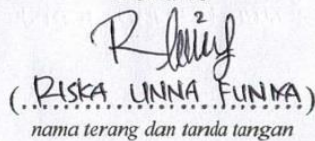 (RISKA UNNA FUNKA)
nama terang dan tanda tangan